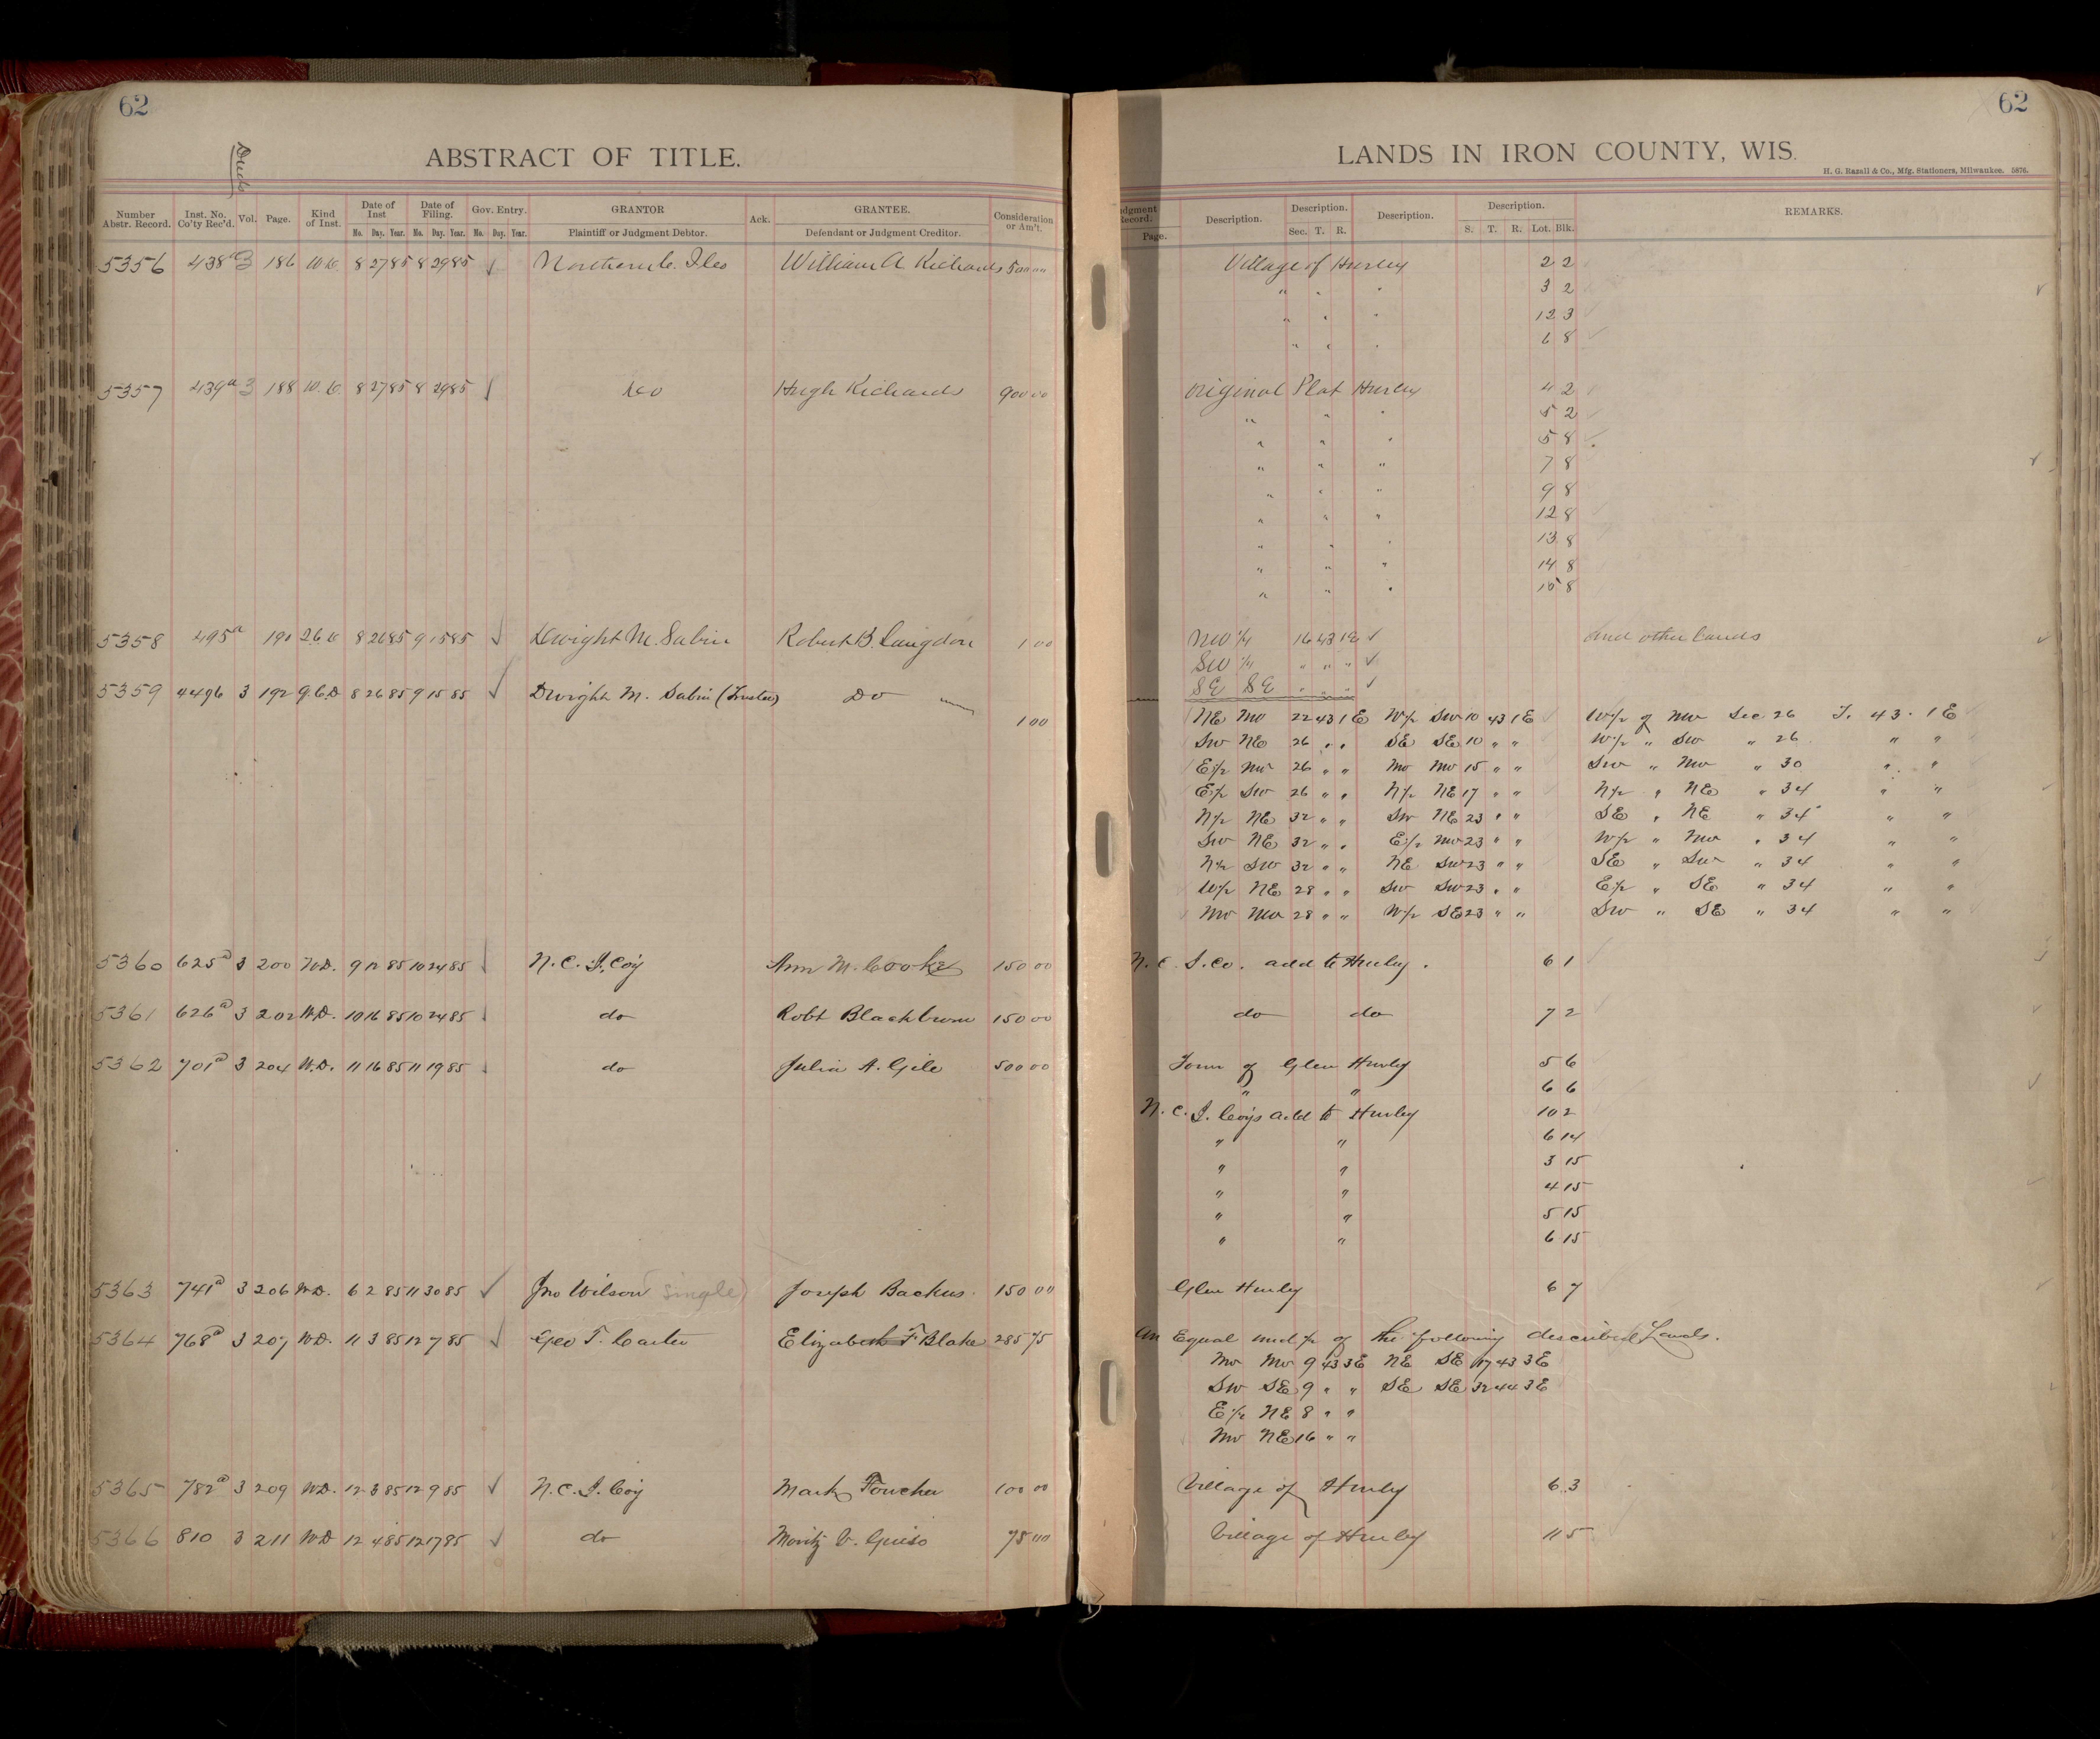 62
62
Deeds
ABSTRACT OF TITLE.
LANDS IN IRON COUNTY, WIS.
H. G. Razall & Co., Mfg. Stationers, Milwaukee. 5876.
Number Abstr. Record. Inst. No. Co'ty Rec'd. Vol. Page. Kind of Inst. Date of Inst Date of Filing. Gov. Entry. GRANTOR Ack. GRANTEE. Consideration or Am't. Judgment Record. Description. Description. Description. Description. REMARKS.
Mo. Day. Year. Mo. Day. Year. No. Day. Year. Plaintiff or Judgment Debtor. Defendant or Judgment Creditor. Page. Sec. T. R. S. T. R. Lot. Blk.
5356 438a 3 186 8 27 85 8 29 85 √ William A Richards 500 00 Village of Hurley 2 2
" " " 3 2
" " " 12 3
" " " 6 8
5357 439a 3 188 8 27 85 8 29 85 √ do Hugh Richards 900 00 Original Plat Hurley 4 2
" " " 5 2
" " " 5 8
" " " 7 8
" " " 9 8
" " " 12 8
" " " 13 8
" " " 14 8
" " " 15 8
5358 495a 190 8 26 85 9 15 85 √ Dwight M. Sabin Robert B. Langdon 1 00 NW 1/4 16 43 1E √ and other lands
SW 1/4 " " " √
SE SE " " " √
5359 4496 3 192 Q.C.D 8 26 85 9 15 85 √ Dwight M. Sabin (Trustee) Do
1 00 NE NW 22 43 1 E W/2 SW 10 43 1 E W/2 of NW Sec. 26 T. 43. 1 E
SW NE 26 " " SE SE 10 " " W/2 " SW " 26 " "
E/2 NW 26 " " NW NW 15 " " SW " NW " 30 " "
E/2 SW 26 " " N/2 NE 17 " " N/2 " NE " 34 " "
N/2 NE 32 " " SW NE 23 " " SE " NE " 34 " "
SW NE 32 " " E/2 NW 23 " " W/2 " NW " 34 " "
N/2 SW 32 " " NE SW 23 " " SE " SW " 34 " "
W/2 NE 28 " " SW SW 23 " " E/2 " SE " 34 " "
NW NW 28 " " W/2 SE 23 " " SW " SE " 34 " "
5360 625a 3 200 W.D. 9 12 85 10 24 85 √ N. C. I. Coy Ann M. Cooke 150 00 N. C. I. Co. add to Hurley. 6 1
5361 626a 3 202 W.D. 10 16 85 10 24 85 √ do Robt Blackburn 150 00 do do 7 2
5362 701a 3 204 W.D. 11 16 85 11 19 85 √ do Julia A. Gile 500 00 Town of Glen Hurley 5 6
" " 6 6
N. C. I. Coy's add to Hurley 10 2
" " 6 14
" " 3 15
" " 4 15
" " 5 15
" " 6 15
5363 741a 3 206 W.D. 6 2 85 11 30 85 √ Jno Wilson (single) Joseph Backus. 150 00 Glen Hurley 6 7
5364 768a 3 207 W.D. 11 3 85 12 7 85 √ Geo T. Carter Elizabeth F Blake 285 75 An Equal und 1/2 of the following described Lands.
NW NW 9 43 3E NE SE 17 43 3E
SW SE 9 " " SE SE 32 44 3E
E 1/2 NE 8 " "
NW NE 16 " "
5365 782a 3 209 W.D. 12 3 85 12 9 85 √ N. C. I. Coy Mark Foucher 100 00 Village of Hurley 6 3
5366 810 3 211 W.D 12 4 85 12 17 85 √ do 75 00 Village of Hurley 11 5